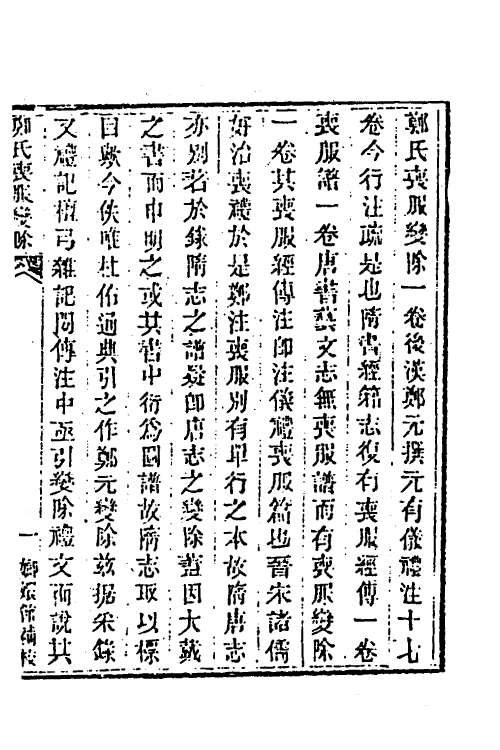 鄭氏喪服變除一卷後漢鄭元撰元有儀禮注十七
卷今行注疏是也隋書經籍志復有喪服經傳一卷
喪服譜一卷唐書藝文志無喪服譜而有喪服變除
一卷其喪服經傳注即注儀禮喪服篇也晉宋諸儒
好治喪禮於是鄭注喪服別有單行之本故隋唐志
亦別著於錄隋志之譜疑即唐志之變除蓋因大戴
之書而申明之或其書中衍為圖譜故隋志取以標
目歟今佚唯杜佑通典引之作鄭元變除茲据采錄
又禮記檀弓雜記間傳注中亟引變除禮文而說其
鄭氏喪服變除 一 嫏嬛館補校